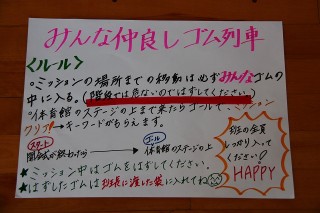 みんな仲良しゴム列車
<ルール>
○ミッションの場所までの移動は必ずみんなゴムの
中に入る。(階段では危ないのではずしてください。)
○体育館のステージの上まで来たらゴールで、ミッション
クリア→キーワードがもらえます。
スタート
開会式が終わったら
→
ゴール
体育館のステージの上
★ミッション中はゴムをはずしてください。
★はずしたゴムは班長に渡した袋に入れてね
班の全員
しっかり入って
ください!
HAPPY